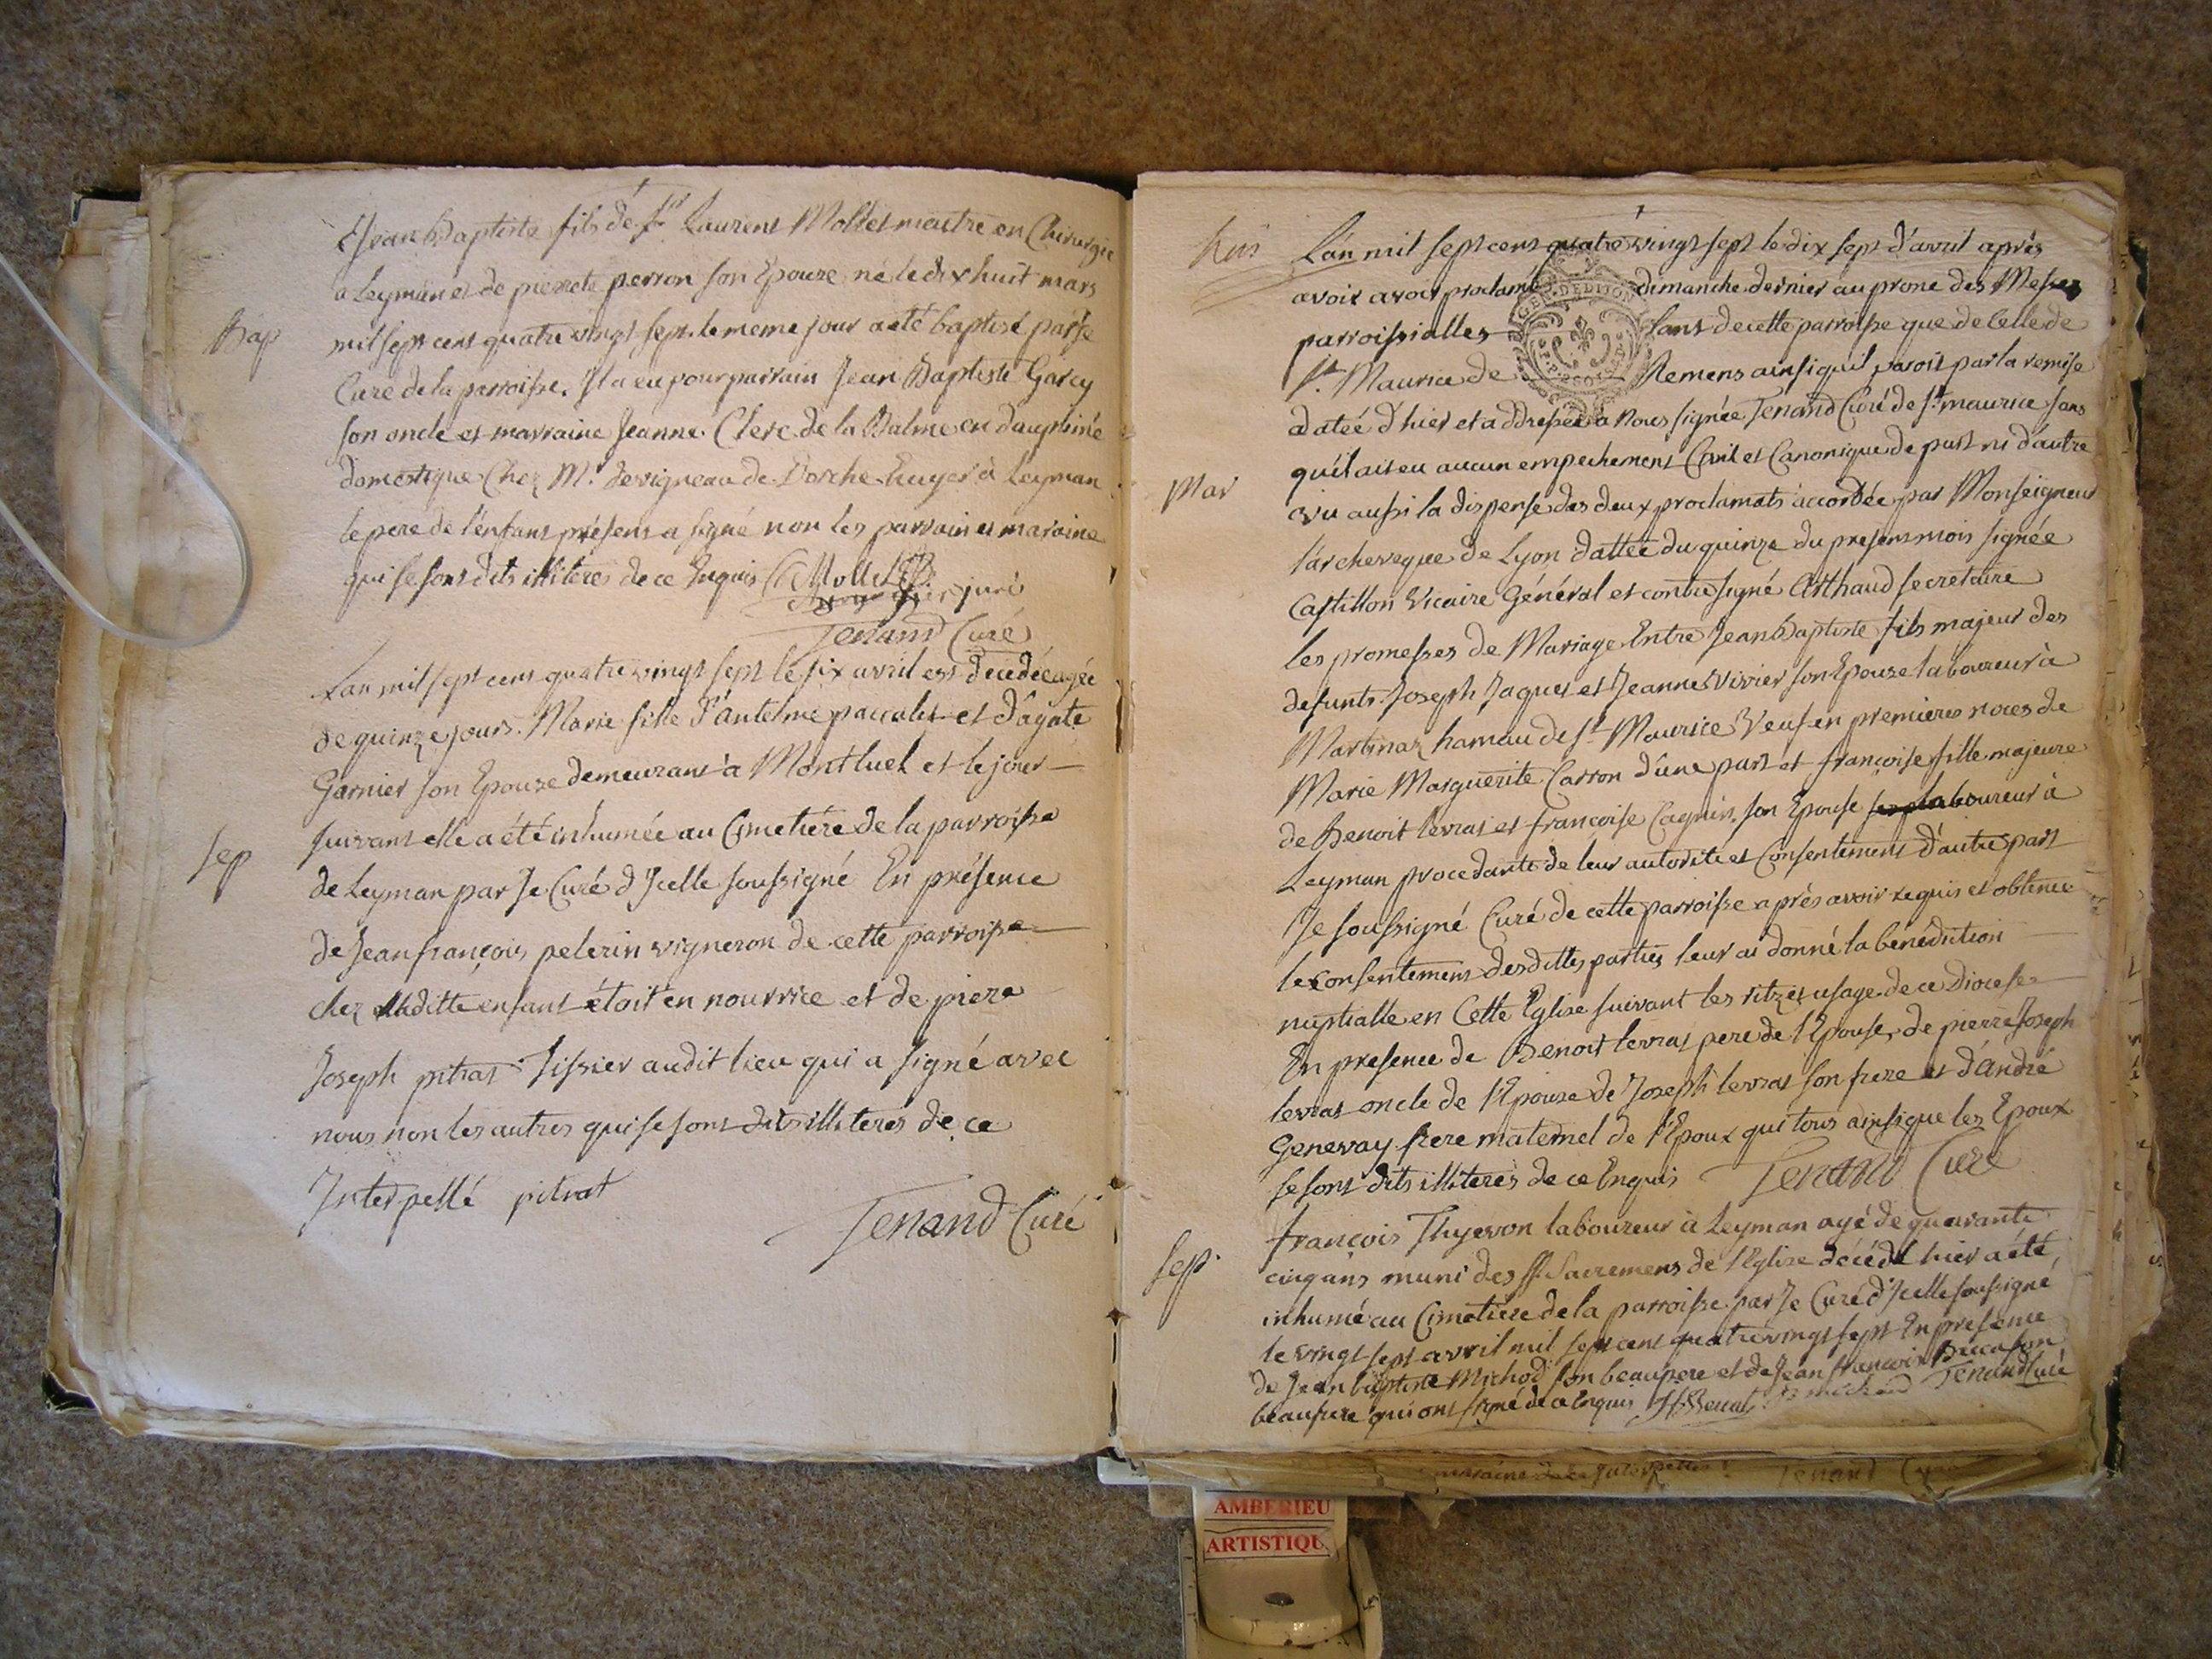 Jean Baptiste fils de Sr Laurent Mollet maitre en Chirurgie
a Leyman et de pierrete perron son Epouze né le dix huit mars
Bap
mil sept cent quatre vingt sept le meme jour a été baptisé par se
Curé de la parroisse. Il a eu pour parrain Jean Baptiste Garcy
son oncle et marraine Jeanne Clerc de la Balme en dauphiné
domestique Chez Mr. devigneau de Borche huyer à Leyman
le pere de l'enfant présent a signé non les parrain et maraine
qui se sont dits illiteres de ce Enquis Mollet
juré
Tenand Curé
L'an mil sept cent quatre vingt sept le six avril est decedée agée
de quinze jours Marie fille d'antelme paccalet et d'agate
Garnier son Epouze demeurant à Montluel et le jour
Sep
suivant elle a été inhumée au Cimetière de la parroisse
de Leyman par Je Curé d'Jcelle soussigné En présence
de Jean françois pelerin vigneron de cette parroisse
chez laditte enfant étoit en nourrice et de piere
Joseph pitrat Tissier audit lieu qui a signé avec
nous non les autres qui se sont dits illiteres de ce
Interpellé pitrat
Tenand Curé
L'an mil sept cent quatre vingt sept le dix sept d'avril après
avoir avoir proclamé dimanche dernier au prone des Messes
parroissialles tant de cette parroisse que de celle de
St. Maurice de Remens ainsi quil paroit par la remise
datée d'hier et addressée à Nous signée Tenand Curé de St maurice sans
qu'il ait eu aucun empechement Civil et Canonique de part ni d'autre
Mar
vu aussi la dispense des deux proclamats accordée par Monseigneur
l'archeveque de Lyon dattée du quinze du present mois signée
Castillon Vicaire Général et contre signé Atthaud secretaire
les promesses de Mariage Entre Jean Baptiste fils majeur des
defunts Joseph Jaquet et Jeanne Vivier son Epouze laboureur à
Martinaz hamau de St. Maurice Veuf en premieres noces de
Marie Marguerite Carron d'une part et françoise fille majeure
de Benoit levrat et francoise Cagnin son Epouse laboureur à
Leyman procedante de leur autorité et Consentement d'autre part
Je soussigné Curé de cette parroisse après avoir requis et obtenu
le consentement desdittes parties leur ai donné la bénédiction
nuptialle en Cette Eglise suivant les ritz et usage de ce Diocese
En presence de Benoit levrat pere de l'Epouse, de pierre Joseph
levrat oncle de l'Epouze de Joseph levrat son frere et d'André
Genevay frere maternel de l'Epoux qui tous ainsi que les Epoux
se sont dits illiteres de ce Enquis Tenand Curé
françois Thyevon laboureur à Leyman agé de quarante
Sep.
cinq ans muni des SS. Sacremens de l'Eglise décédé hier a été
inhumé au Cimetière de la parroisse par Je Curé d'Jcelle soussigné
le vingt sept avril mil sept cent quatre vingt sept En presence
de Jean baptiste Michod son beaupere et de Jean francois
beaufrere qui ont signé de ce Enquis Tenand Curé
Tenand
AMBERIEU
ARTISTIQU